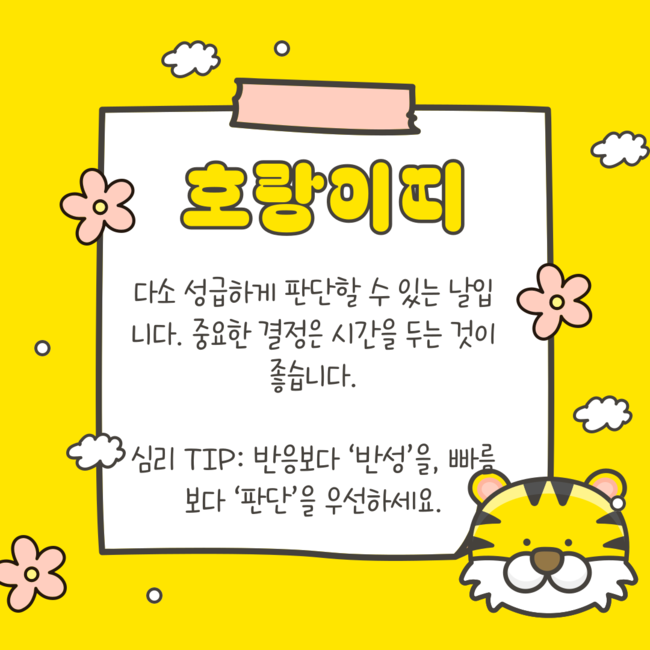 호랑이띠
다소 성급하게 판단할 수 있는 날입
니다. 중요한 결정은 시간을 두는 것이
좋습니다.
심리 TIP: 반응보다 ‘반성’을, 빠름
보다 ‘판단’을 우선하세요.